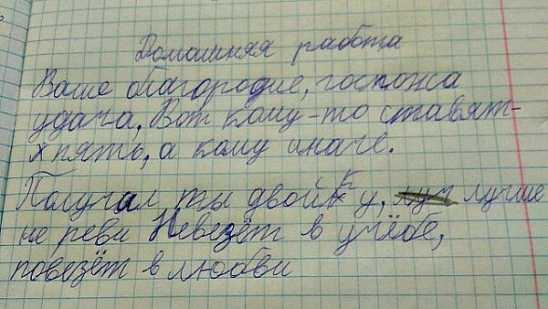 Домашняя работа
Ваше благородие, госпожа
удача, Вот кому-то ставят-
х пять, а кому иначе.
Палучил ты двойку, лучше
не реви Невезёт в учёбе,
повезёт в любви